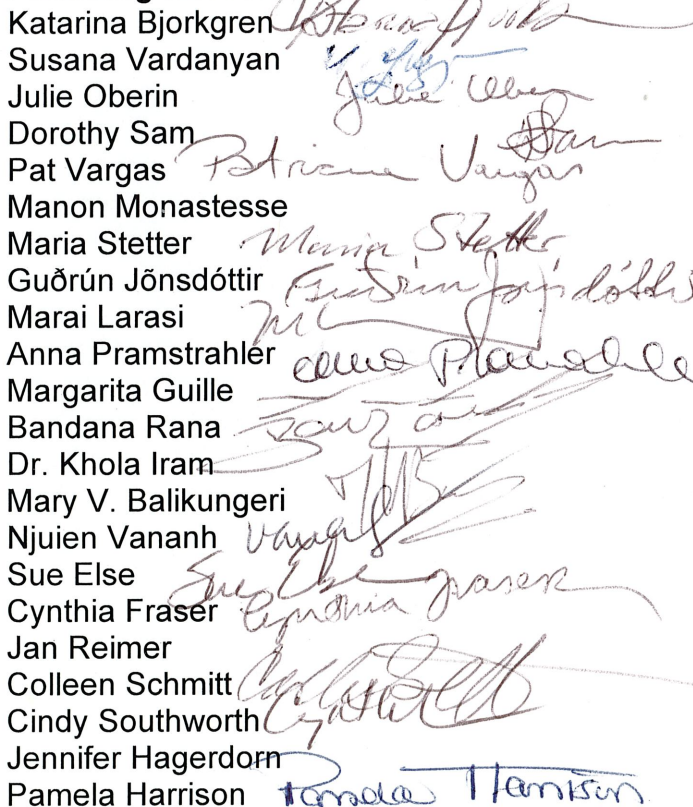 Katarina Bjorkgren
Susana Vardanyan
Julie Oberin Julie Oberin
Dorothy Sam DSam
Pat Vargas Patricia Vargas
Manon Monastesse
Maria Stetter Maria Stetter
Guðrún Jõnsdóttir Guðrún Jónsdóttir
Marai Larasi
Anna Pramstrahler Anna Pramstrahler
Margarita Guille
Bandana Rana
Dr. Khola Iram
Mary V. Balikungeri
Njuien Vananh Vananh
Sue Else Sue Else
Cynthia Fraser Cynthia Fraser
Jan Reimer
Colleen Schmitt
Cindy Southworth
Jennifer Hagerdorn
Pamela Harrison Pamela Harrison